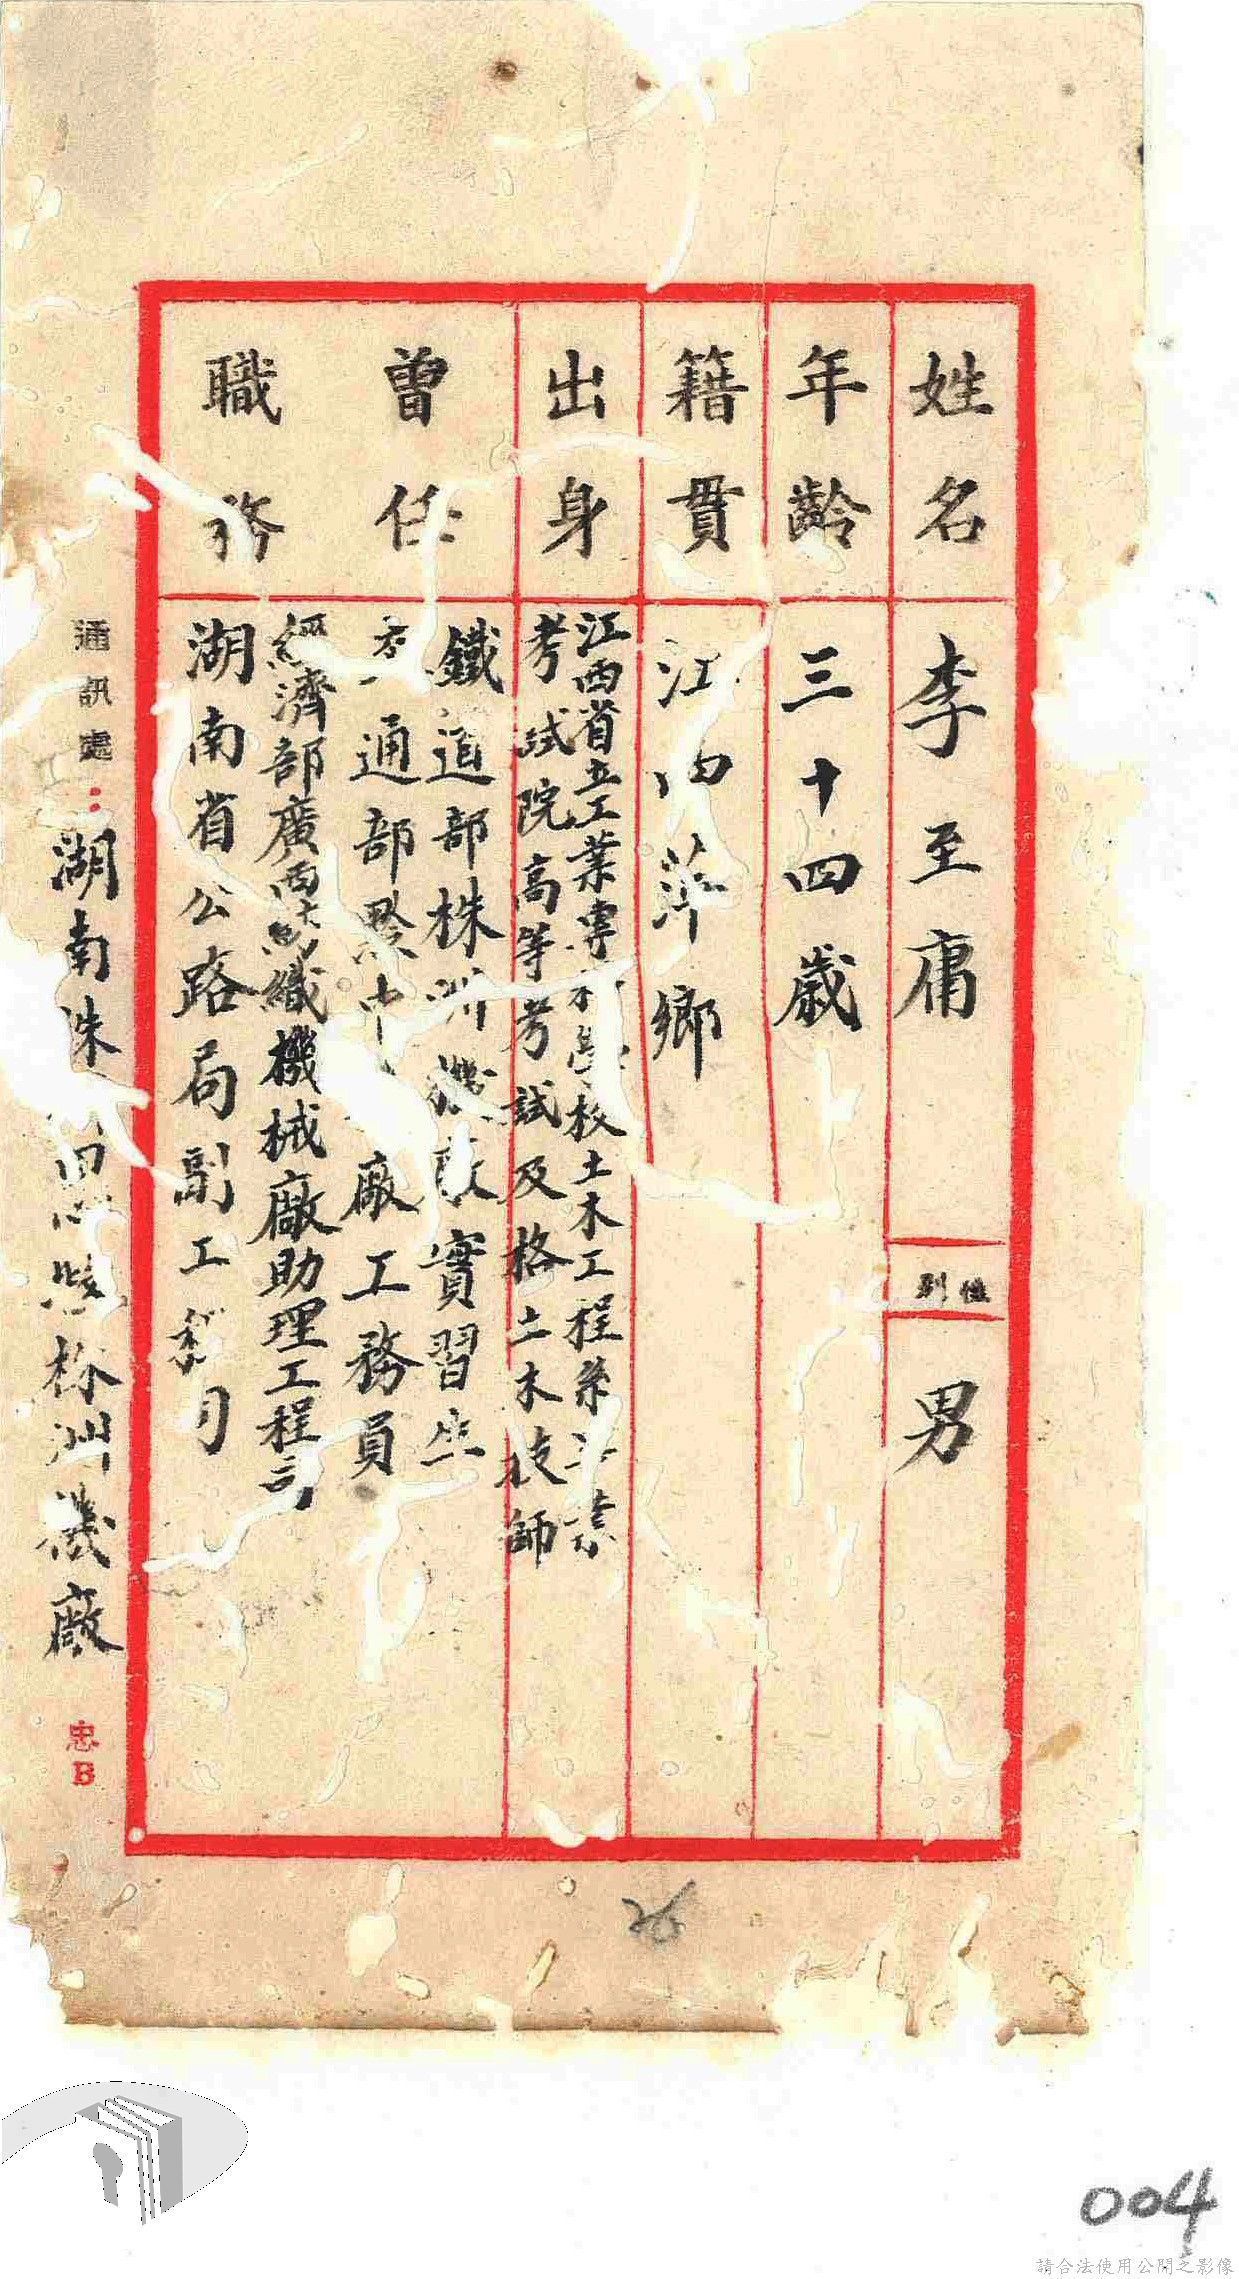 姓名 李至庸
性別 男
年齡 三十四歲
籍貫 江西萍鄉
出身
江西省立工業專科學校土木工程系畢業
考試院高等考試及格土木技師
曾任職務
鐵道部株洲機廠實習生
交通部黔中機廠工務員
經濟部廣西紡織機械廠助理工程司
湖南省公路局副工程司
通訊處：湖南株洲田心株洲機廠
忠B
004
請合法使用公開之影像